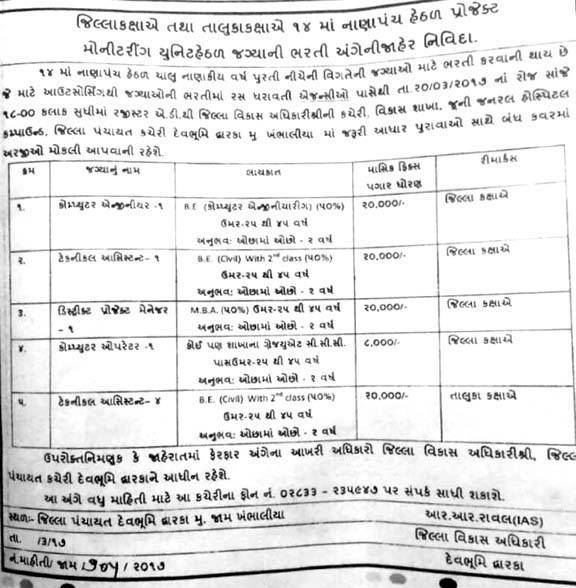 જિલ્લાકક્ષાએ તથા તાલુકાકક્ષાએ ૧૪ માં નાણાપંચ હેઠળ પ્રોજેક્ટ
મોનીટરીંગ યુનિટહેઠળ જગ્યાની ભરતી અંગેનીજાહેર નિવિદા.
૧૪ માં નાણાપંચ હેઠળ ચાલુ નાણાકીય વર્ષ પુરતી નીચેની વિગતેની જગ્યાઓ માટે ભરતી કરવાની થાય છે
જે માટે આઉટસોર્સિંગથી જગ્યાઓની ભરતીમાં રસ ધરાવતી એજન્સીઓ પાસેથી તા.૨૦/૦૩/૨૦૧૭ નાં રોજ સાંજે
૧૮-૦૦ કલાક સુધીમાં રજીસ્ટર એ.ડી.થી જિલ્લા વિકાસ અધિકારીશ્રીની કચેરી, વિકાસ શાખા, જુની જનરલ હોસ્પિટલ
કમ્પાઉન્ડ, જિલ્લા પંચાયત કચેરી દેવભૂમિ દ્વારકા મુ ખંભાલીયા માં જરૂરી આધાર પુરાવાઓ સાથે બંધ કવરમાં
અરજીઓ મોકલી આપવાની રહેશે.
ક્રમ જગ્યાનું નામ લાયકાત માસિક ફિક્સ પગાર ધોરણ રીમાર્કસ
૧. કોમ્પ્યુટર એન્જીનીયર -૧ B.E (કોમ્પ્યુટર એન્જીનીયારીંગ) (૫૦%) ૨૦,૦૦૦/- જિલ્લા કક્ષાએ
ઉમર-૨૫ થી ૪૫ વર્ષ
અનુભવ: ઓછામાં ઓછો - ૨ વર્ષ
૨. ટેકનીકલ આસિસ્ટન્ટ- ૧ B.E. (Civil) With 2nd class (૫૦%) ૨૦,૦૦૦/- જિલ્લા કક્ષાએ
ઉમર-૨૫ થી ૪૫ વર્ષ
અનુભવ: ઓછામાં ઓછો - ૨ વર્ષ
૩. ડિસ્ટ્રીક્ટ પ્રોજેક્ટ મેનેજર - ૧ M.B.A. (૫૦%) ઉમર-૨૫ થી ૪૫ વર્ષ ૨૦,૦૦૦/- જિલ્લા કક્ષાએ
અનુભવ: ઓછામાં ઓછો - ૨ વર્ષ
૪. કોમ્પ્યુટર ઓપરેટર -૧ કોઈ પણ શાખાના ગ્રેજયુએટ સી.સી.સી. ૮,૦૦૦/- જિલ્લા કક્ષાએ
પાસઉમર-૨૫ થી ૪૫ વર્ષ
અનુભવ: ઓછામાં ઓછો - ૨ વર્ષ
૫. ટેકનીકલ આસિસ્ટન્ટ- ૪ B.E. (Civil) With 2nd class (૫૦%) ૨૦,૦૦૦/- તાલુકા કક્ષાએ
ઉમર-૨૫ થી ૪૫ વર્ષ
અનુભવ: ઓછામાં ઓછો - ૨ વર્ષ
ઉપરોક્તનિમણુક કે જાહેરાતમાં ફેરફાર અંગેના આખરી અધિકારો જિલ્લા વિકાસ અધિકારીશ્રી,
પંચાયત કચેરી દેવભૂમિ દ્વારકાને આધીન રહેશે.
આ અંગે વધુ માહિતી માટે આ કચેરીના ફોન નં. ૦૨૮૩૩ - ૨૩૫૯૪૭ પર સંપર્ક સાધી શકાશે.
સ્થળ:- જિલ્લા પંચાયત દેવભૂમિ દ્વારકા મુ. જામ ખંભાલીયા
આર.આર.રાવલ(IAS)
તા. /૩/૧૭
જિલ્લા વિકાસ અધિકારી
નં.માહીતી/ જામ / ૨૦૧૭
દેવભૂમિ દ્વારકા